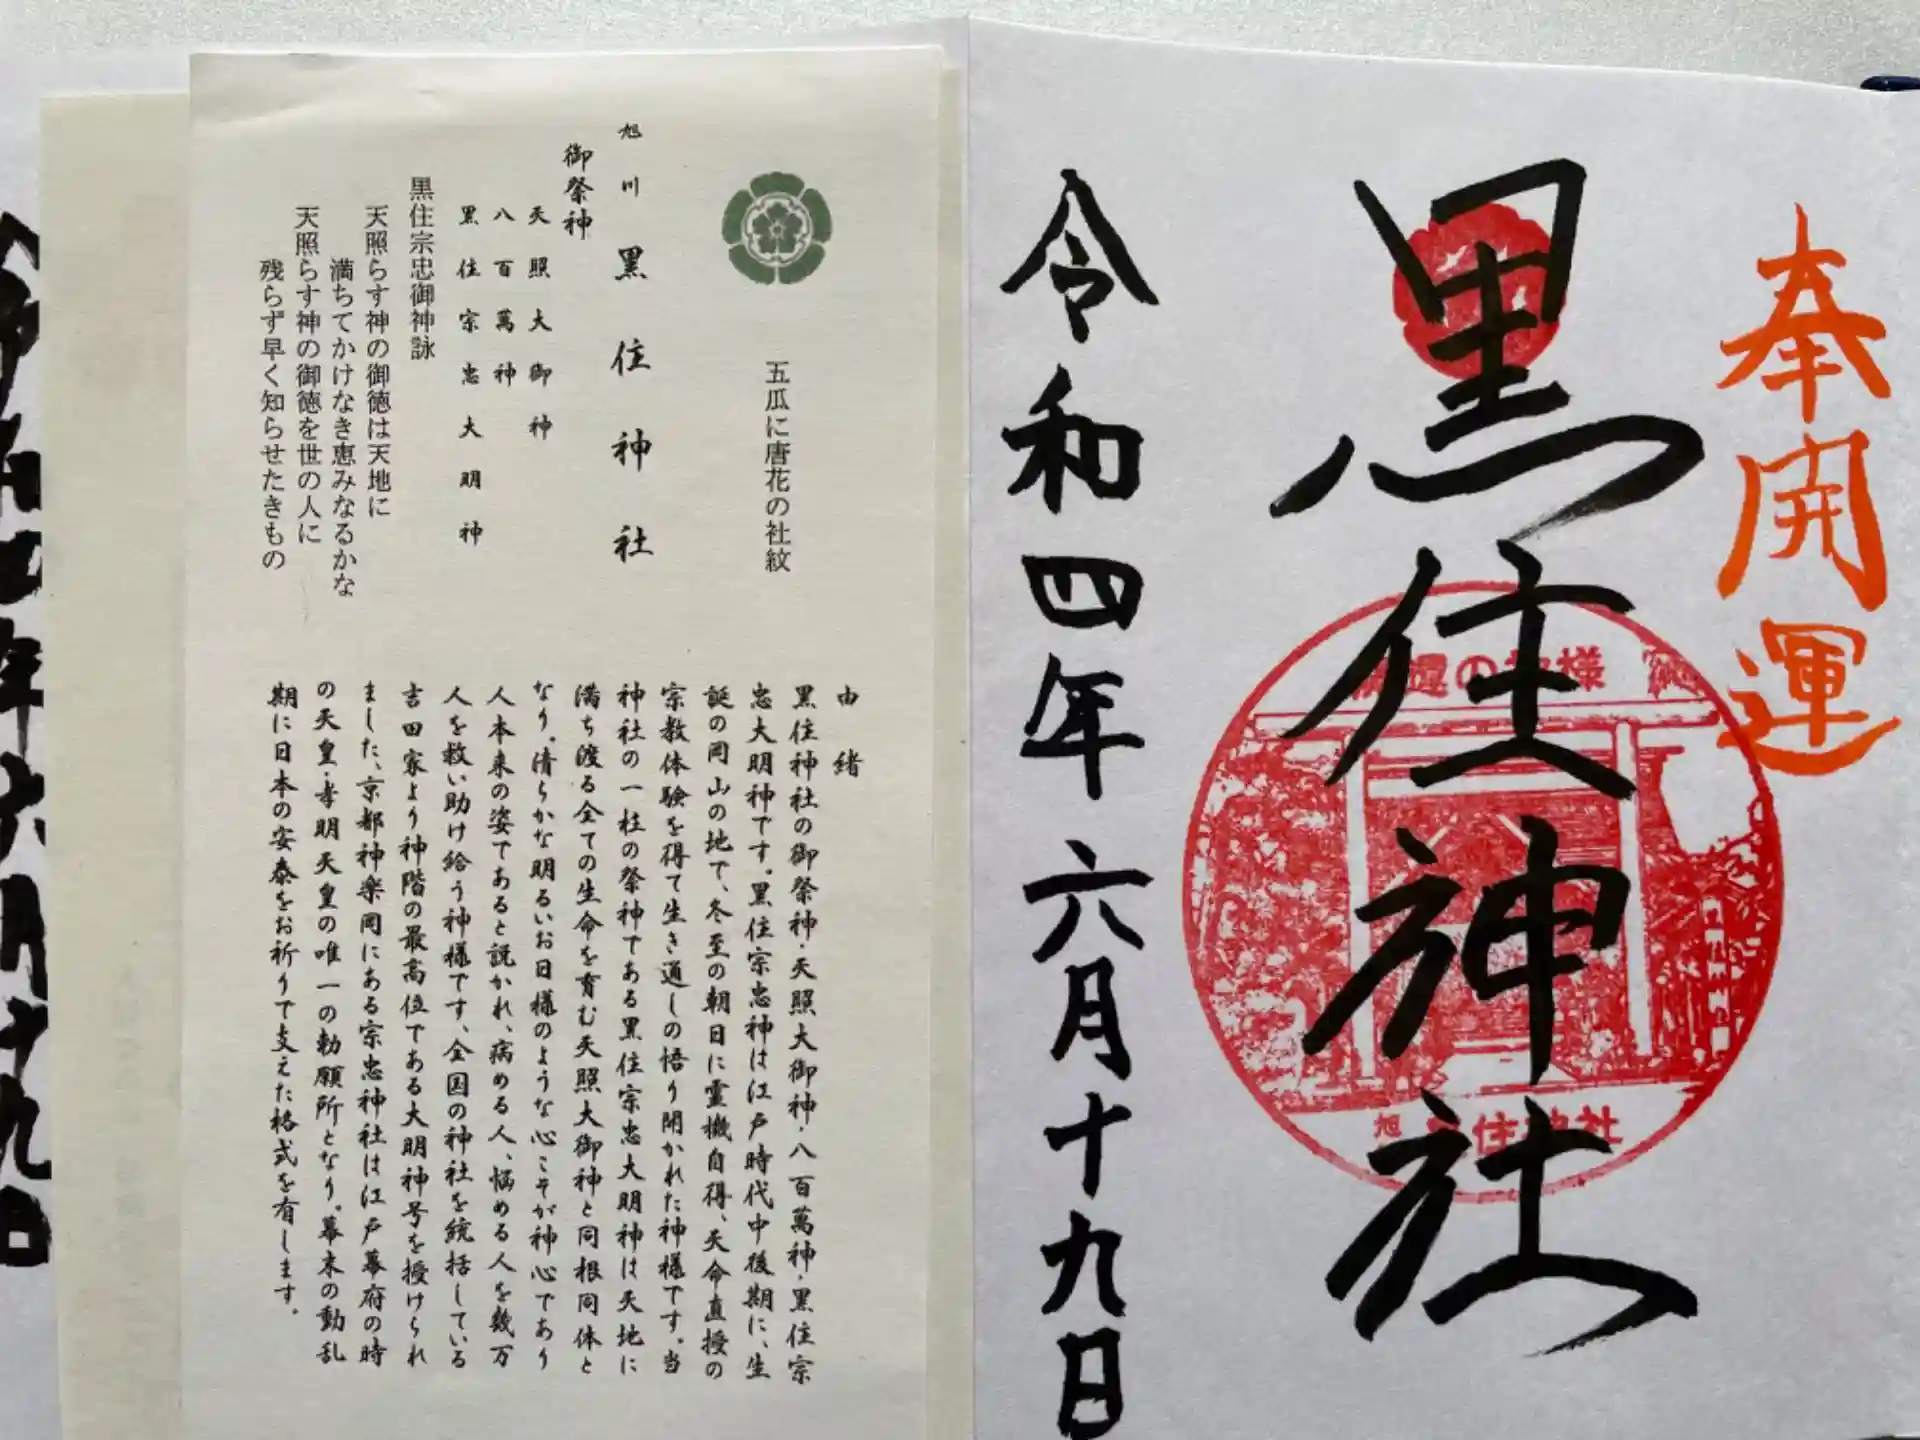 奉開運
黒住神社
開運の神様
旭川黒住神社
令和四年六月十九日
五瓜に唐花の社紋
旭川 黒住神社
御祭神
天照大御神
八百萬神
黒住宗忠大明神
黒住宗忠御神詠
天照らす神の御徳は天地に
満ちてかけなき恵みなるかな
天照らす神の御徳を世の人に
残らず早く知らせたきもの
由緒
黒住神社の御祭神・天照大御神・八百萬神・黒住宗
忠大明神です。黒住宗忠神は江戸時代中後期に、生
誕の岡山の地で、冬至の朝日に霊機自得、天命直授の
宗教体験を得て生き通しの悟り開かれた神様です。当
神社の一柱の祭神である黒住宗忠大明神は天地に
満ち渡る全ての生命を育む天照大御神と同根同体と
なり。清らかな明るいお日様のような心こそが神心であり
人本来の姿であると説かれ、病める人、悩める人を数万
人を救い助け給う神様です、全国の神社を統括している
吉田家より神階の最高位である大明神号を授けられ
ました、京都神楽岡にある宗忠神社は江戸幕府の時
の天皇・孝明天皇の唯一の勅願所となり。幕末の動乱
期に日本の安泰をお祈りで支えた格式を有します。
令和四年六月十九日